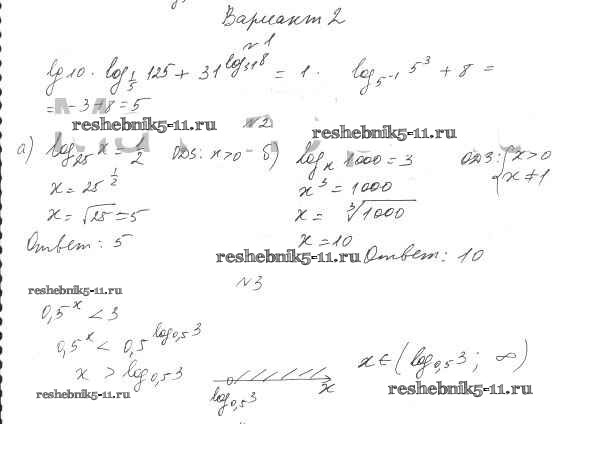 Вариант 2
№1
lg10 · log_{1/5} 125 + 31^{log_{31} 8} = 1 · log_{5^{-1}} 5^3 + 8 =
= -3+8=5
reshebnik5-11.ru
№2
reshebnik5-11.ru
а) log_{25} x = 1/2 ОДЗ: x>0
x = 25^{1/2}
x = √25 = 5
Ответ: 5
б) log_x 1000 = 3 ОДЗ: { x>0 x≠1
x^3 = 1000
x = ∛1000
x = 10
reshebnik5-11.ru Ответ: 10
№3
reshebnik5-11.ru
0,5^x < 3
0,5^x < 0,5^{log_{0,5} 3}
x > log_{0,5} 3
log_{0,5} 3 x
x ∈ (log_{0,5} 3; ∞)
reshebnik5-11.ru
reshebnik5-11.ru